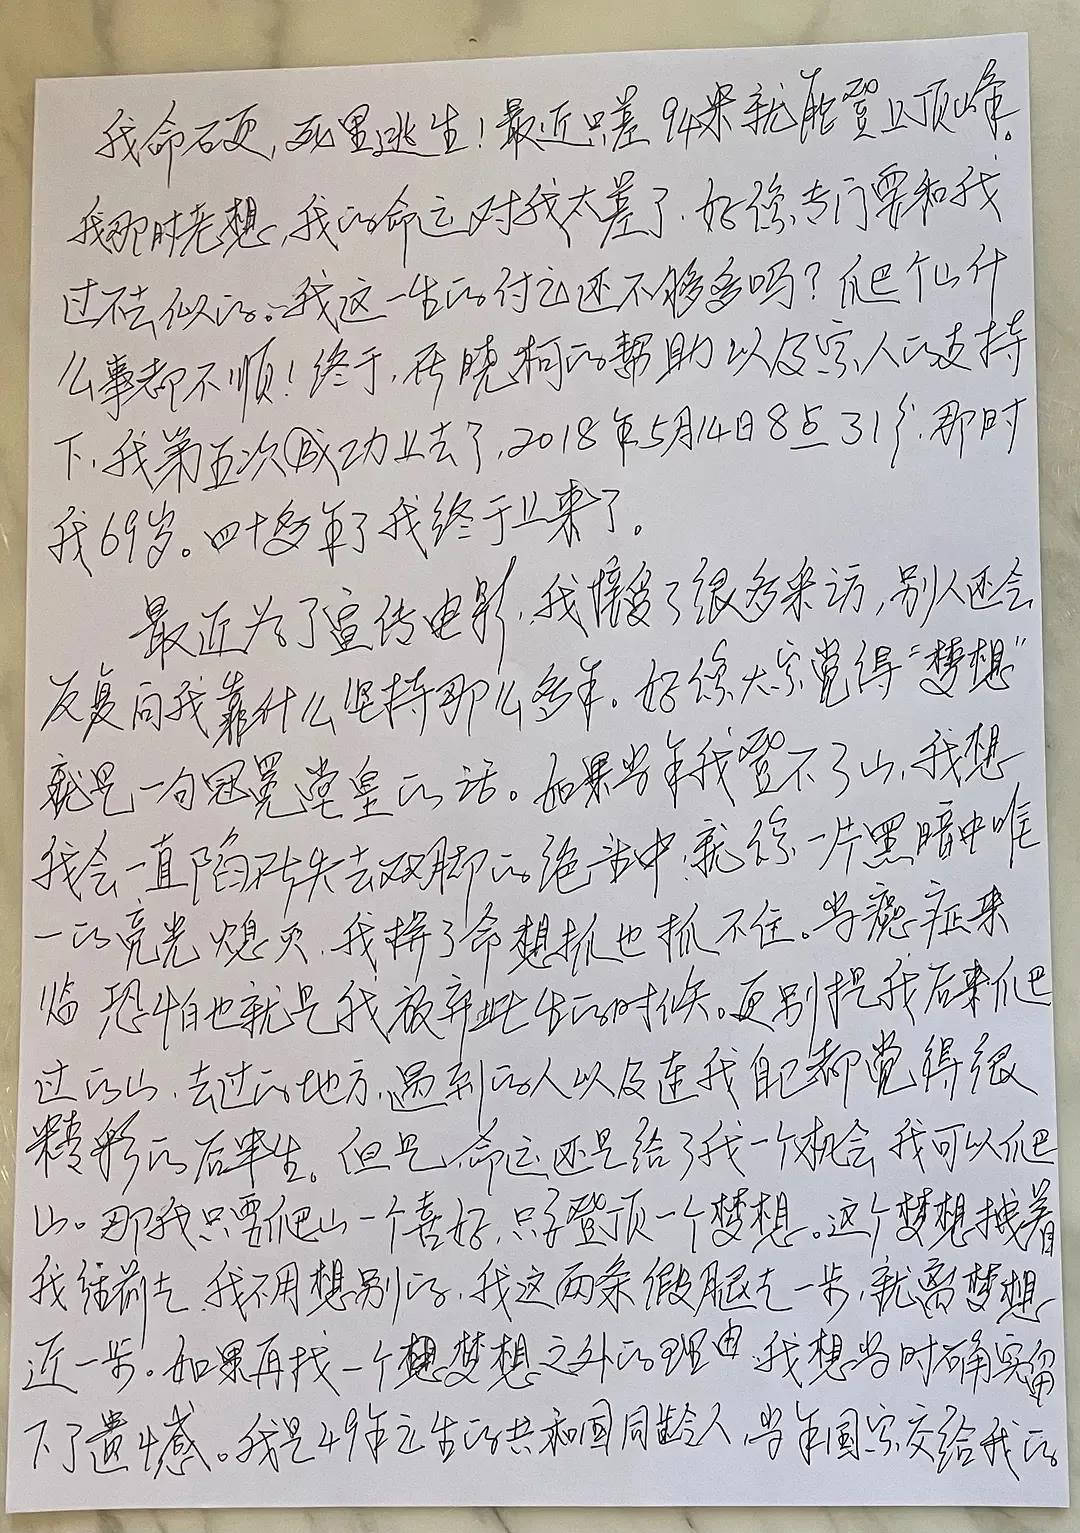 我命硬,死里逃生!最近只差94米就能登上顶峰。
我那时老想,我的命运对我太差了,好像专门要和我
过不去似的。我这一生的付出还不够多吗?爬个山什
么事都不顺!终于,在晓柯的帮助以及家人的支持
下,我第五次成功上去了,2018年5月14日8点31分,那时
我69岁。四十多年了我终于上来了。
最近为了宣传电影,我接受了很多采访,别人还会
反复问我靠什么坚持那么多年。好像大家觉得“梦想”
就是一句冠冕堂皇的话。如果当年我登不了山,我想
我会一直陷在失去双脚的绝望中,就像一片黑暗中唯
一的亮光熄灭,我拼了命想抓也抓不住。当癌症来
临恐怕也就是我放弃此生的时候。更别提我后来爬
过的山,去过的地方,遇到的人以及连我自己都觉得很
精彩的后半生。但是,命运还是给了我一个机会,我可以爬
山。那我只要爬山一个喜好,只要登顶一个梦想。这个梦想拽着
我往前走,我不用想别的,我这两条假腿走一步,就离梦想
近一步。如果再找一个梦想之外的理由,我想当时确实留
下了遗憾。我是49年出生的共和国同龄人,当年国家交给我的